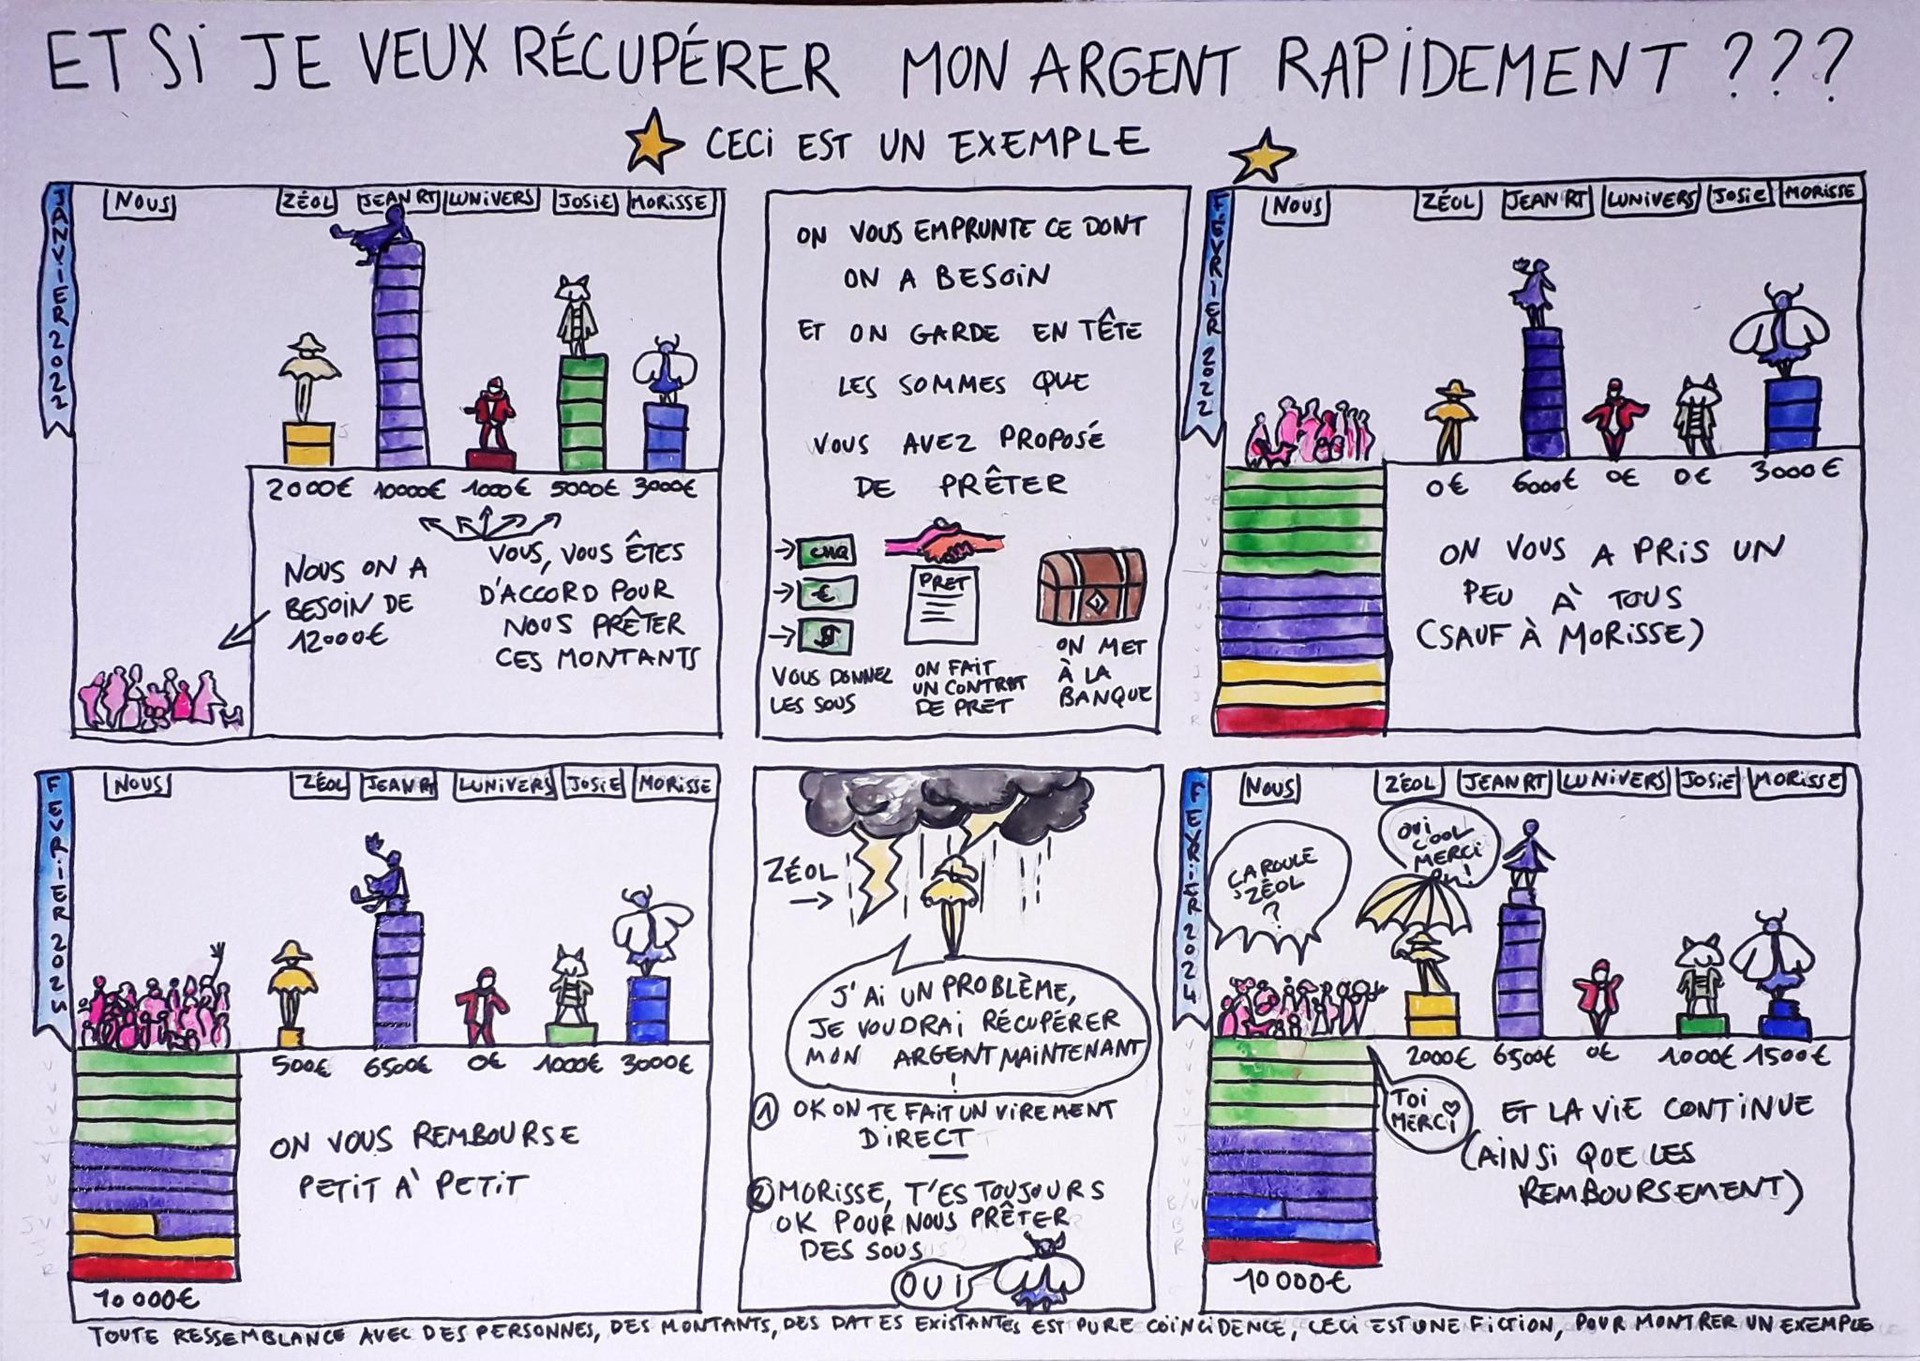 ET SI JE VEUX RÉCUPÉRER MON ARGENT RAPIDEMENT ???
CECI EST UN EXEMPLE
JANVIER 2022
NOUS
ZÉOL
JEAN RT
LUNIVERS
JOSIE
MORISSE
2000€ 10000€ 1000€ 5000€ 3000€
NOUS ON A
BESOIN DE
12000€
VOUS, VOUS ÊTES
D'ACCORD POUR
NOUS PRÊTER
CES MONTANTS
ON VOUS EMPRUNTE CE DONT
ON A BESOIN
ET ON GARDE EN TÊTE
LES SOMMES QUE
VOUS AVEZ PROPOSÉ
DE PRÊTER
CHQ
€
$
VOUS DONNEZ
LES SOUS
PRET
ON FAIT
UN CONTRAT
DE PRET
ON MET
À LA
BANQUE
FÉVRIER 2022
NOUS
ZÉOL
JEAN RT
LUNIVERS
JOSIE
MORISSE
0€ 6000€ 0€ 0€ 3000€
ON VOUS A PRIS UN
PEU À TOUS
(SAUF À MORISSE)
NOUS
ZÉOL
JEAN RT
LUNIVERS
JOSIE
MORISSE
500€ 6500€ 0€ 1000€ 3000€
ON VOUS REMBOURSE
PETIT À PETIT
10 000€
ZÉOL
J'AI UN PROBLÈME,
JE VOUDRAI RÉCUPÉRER
MON ARGENT MAINTENANT
!
1 OK ON TE FAIT UN VIREMENT
DIRECT
2 MORISSE, T'ES TOUJOURS
OK POUR NOUS PRÊTER
DES SOUS
OUI
FEVRIER 2024
NOUS
ZÉOL
JEAN RT
LUNIVERS
JOSIE
MORISSE
ÇA ROULE
ZÉOL
?
OUI
COOL
MERCI
2000€ 6500€ 0€ 1000€ 1500€
TOI
MERCI
ET LA VIE CONTINUE
(AINSI QUE LES
REMBOURSEMENT)
10 000€
TOUTE RESSEMBLANCE AVEC DES PERSONNES, DES MONTANTS, DES DATES EXISTANTES EST PURE COÏNCIDENCE, CECI EST UNE FICTION, POUR MONTRER UN EXEMPLE